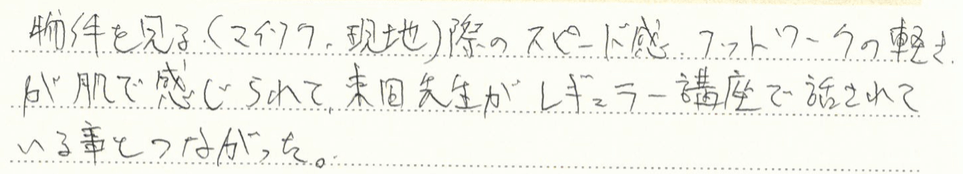 物件を見る(マイソク、現地)際のスピード感、フットワークの軽さ
が肌で感じられて、束田先生がレギュラー講座で話されて
いる事とつながった。